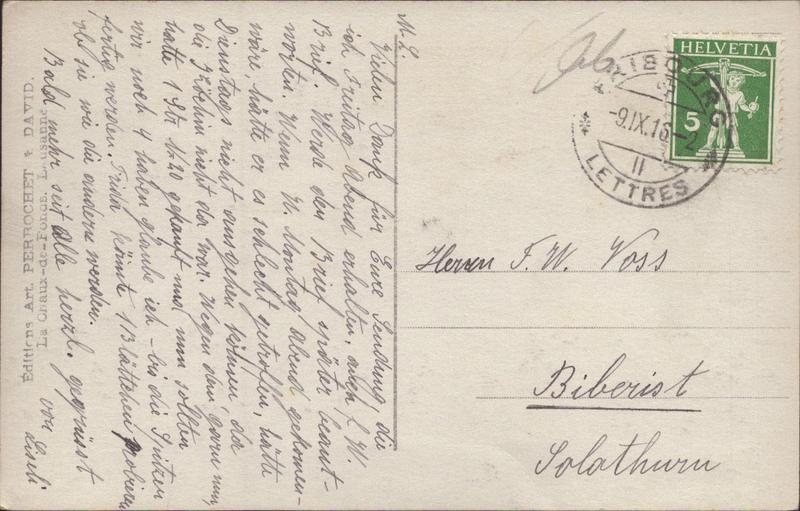 M. L.
Vielen Dank für Eure Sendung, die
ich Freitag Abend erhalten, auch f. W.
Brief. Werde den Brief später beant-
worten. Wenn W. Montag abend gekommen
wäre, hätte er es schlecht getroffen, hätte
Dienstags nicht ausgehen können, da
die Köchin nicht da war. Wegen dem Garn nun,
hatte 1 Str. 1.20 gekauft und nun sollten
wir noch 4 haben glaube ich - bis die Spitzen
fertig werden. Frida könnte 1 Blättchen probieren
ob sie wie die andern werden.
Bald mehr seit alle herzl. gegrüsst
von Liseli
Editions Art. PERROCHET & DAVID.
La Chaux-de-Fonds. Lausanne
HELVETIA
5
FRIBOURG
-9.IX.16-2
II
LETTRES
Herrn F. W. Voss
Biberist
Solathurn